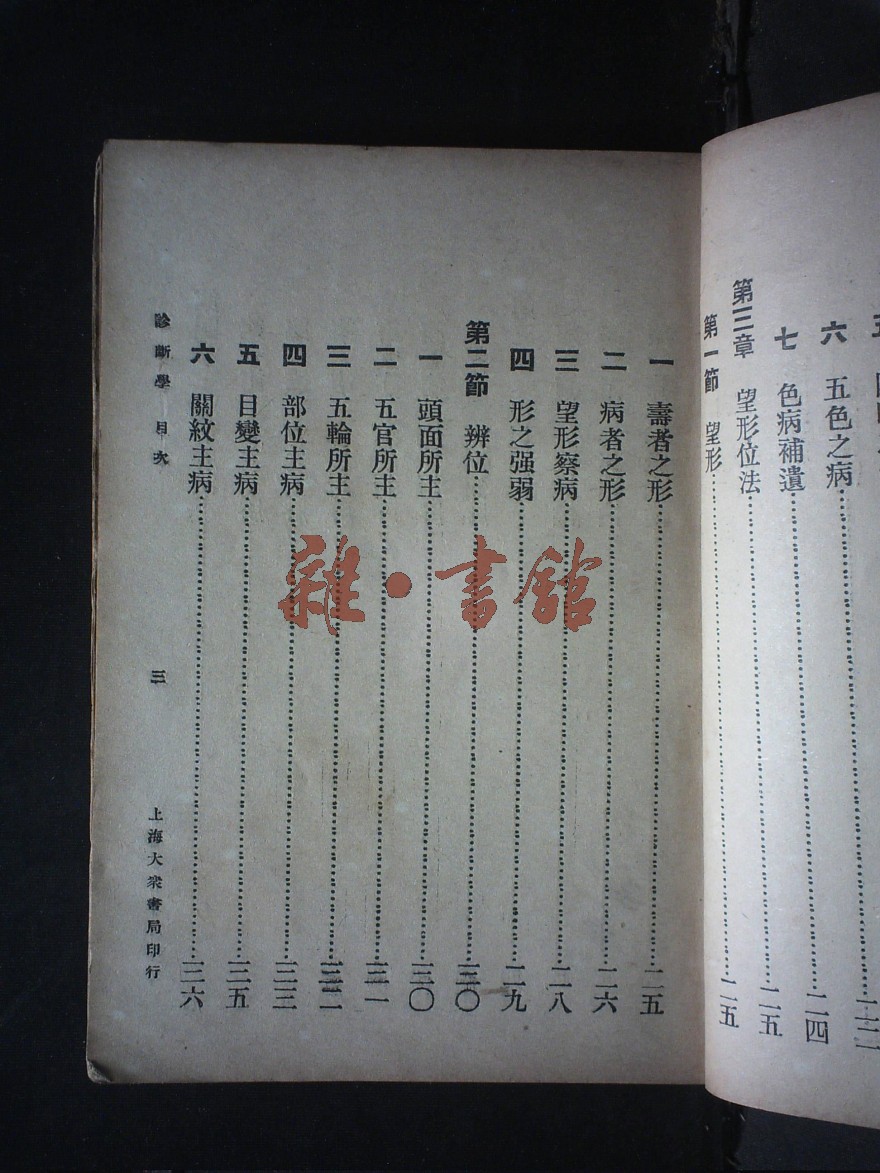 六 五色之病……二四
七 色病補遺……二五
第三章 望形位法
第一節 望形……二五
一 壽者之形……二五
二 病者之形……二六
三 望形察病……二八
四 形之强弱……二九
第二節 辨位……三〇
一 頭面所主……三〇
二 五官所主……三一
三 五輪所主……三二
四 部位主病……三三
五 目變主病……三五
六 關紋主病……三六
診斷學 目次
三
上海大衆書局印行
雜·書館